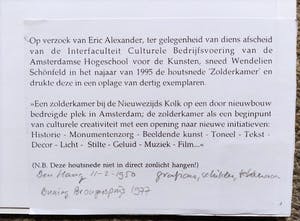 Op verzoek van Eric Alexander, ter gelegenheid van diens afscheid
van de Interfaculteit Culturele Bedrijfsvoering van de
Amsterdamse Hogeschool voor de Kunsten, sneed Wendelien
Schönfeld in het najaar van 1995 de houtsnede 'Zolderkamer' en
drukte deze in een oplage van dertig exemplaren.
»Een zolderkamer bij de Nieuwezijds Kolk op een door nieuwbouw
bedreigde plek in Amsterdam; de zolderkamer als een beginpunt
van culturele creativiteit met een opening naar nieuwe initiatieven:
Historie - Monumentenzorg - Beeldende kunst - Toneel - Tekst -
Decor - Licht - Stilte - Geluid - Muziek - Film...«
(N.B. Deze houtsnede niet in direct zonlicht hangen!)
Den Haag 11-2-1950 grafica, schilder, tekenaar
1977